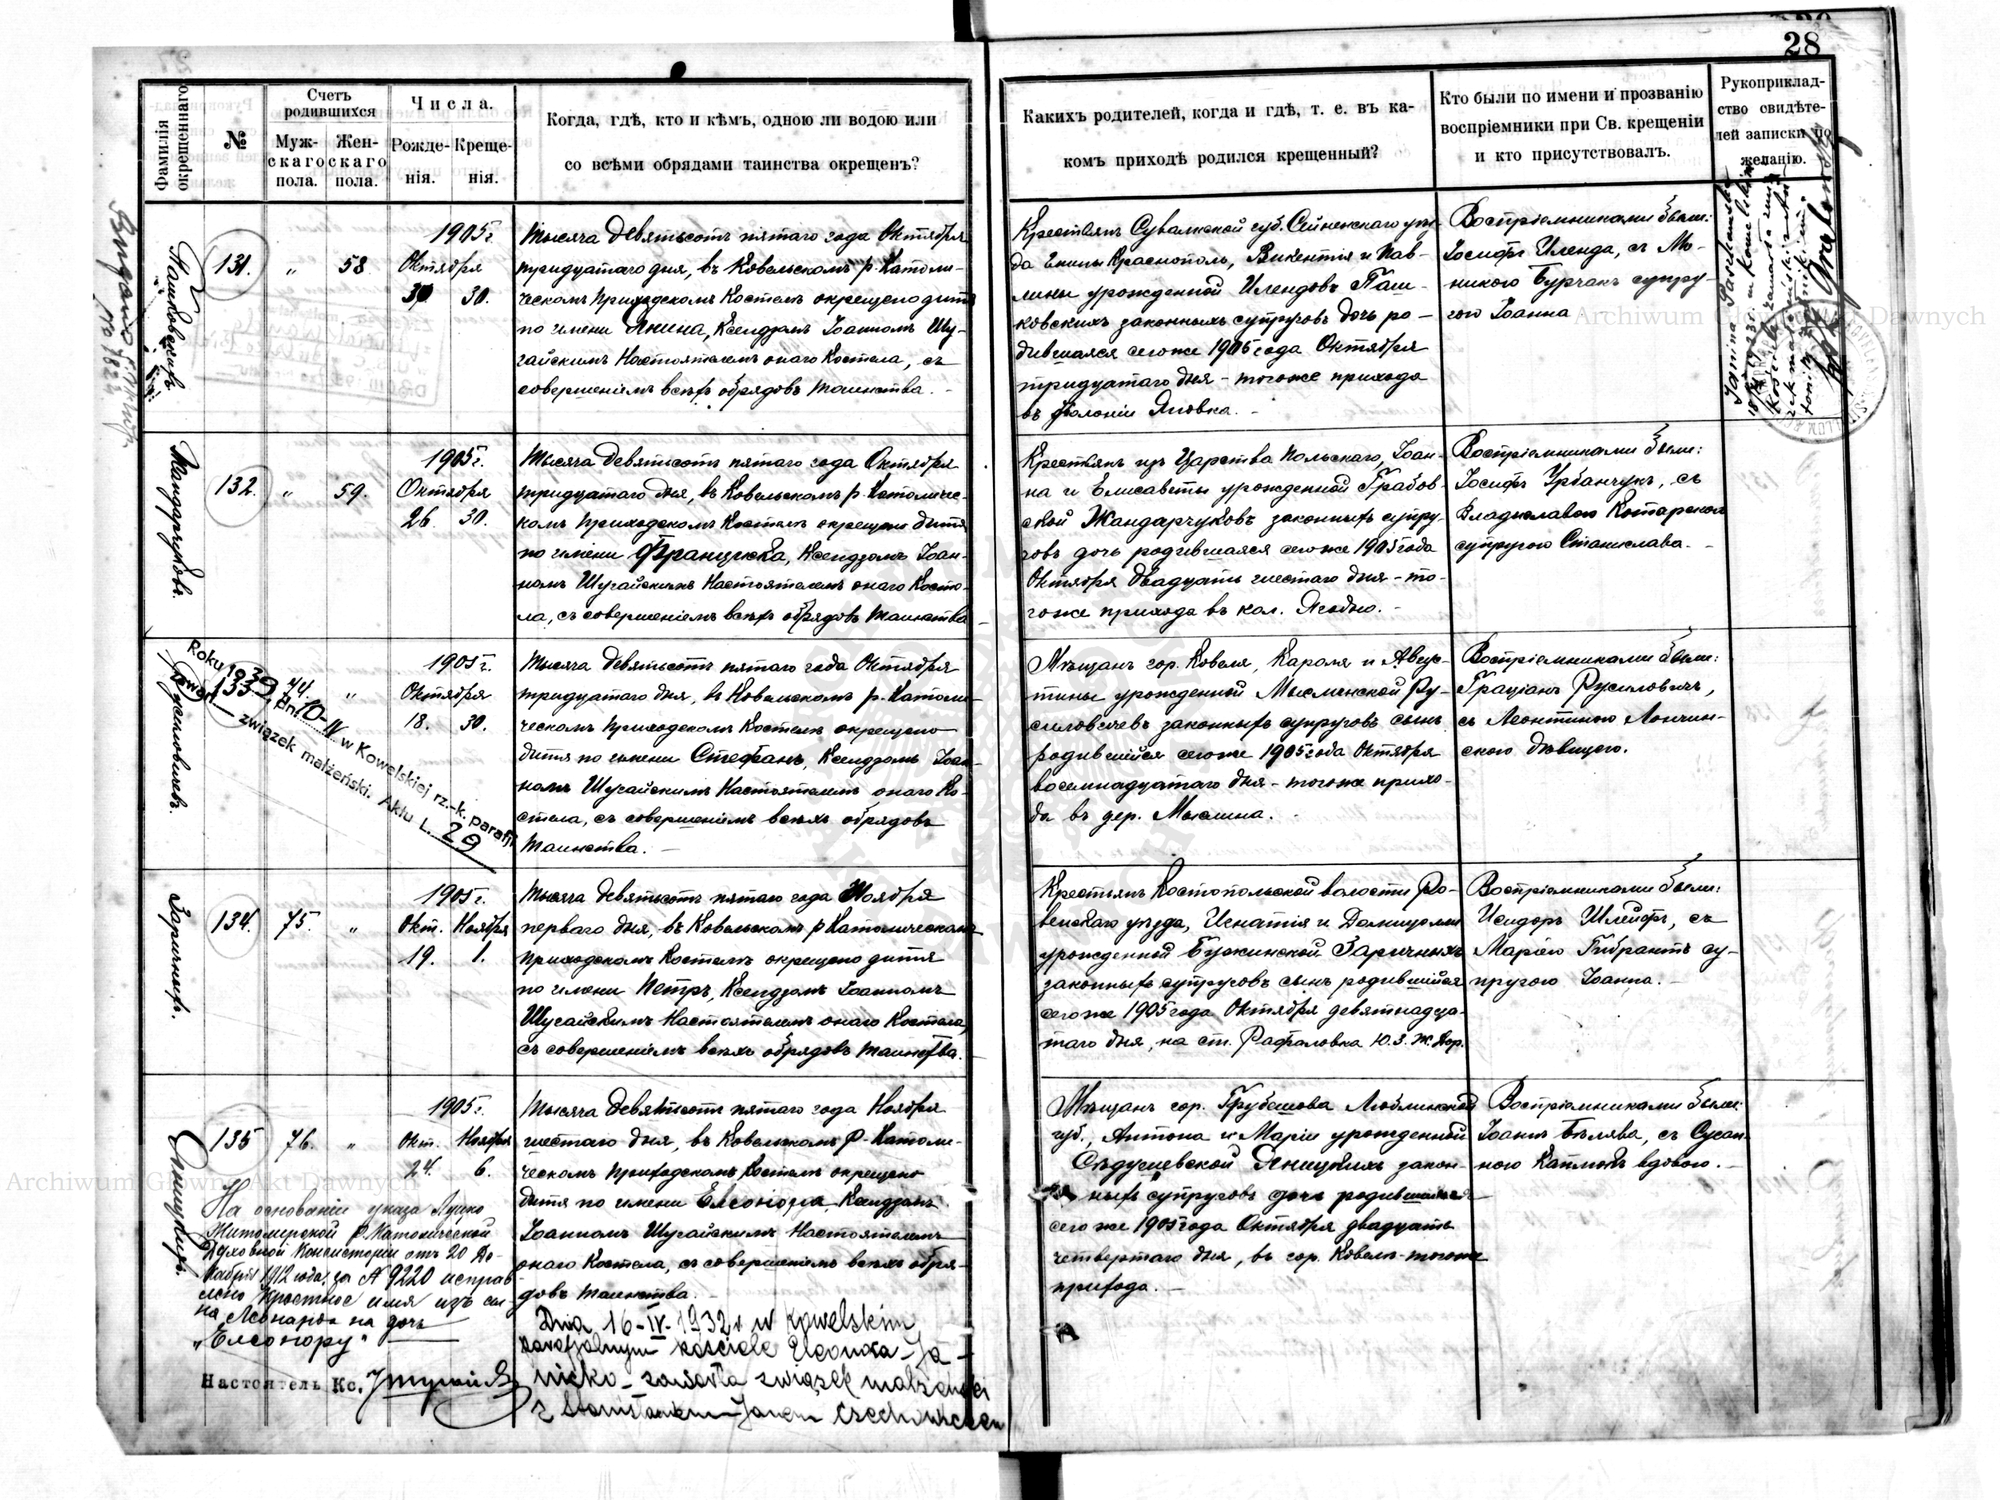 28
Фамилія окрещеннаго.
№
Счетъ родившихся
Мужскаго пола.
Женскаго пола.
Числа.
Рожденія.
Крещенія.
Когда, гдѣ, кто и кѣмъ, одною ли водою или
со всѣми обрядами таинства окрещенъ?
Какихъ родителей, когда и гдѣ, т. е. въ ка-
комъ приходѣ родился крещенный?
Кто были по имени и прозванію
воспріемники при Св. крещеніи
и кто присутствовалъ.
Рукоприклад-
ство свидѣте-
лей записки по
желанію.
Пашковскихъ
131.
„
58
1905 г.
Октября
30 30.
Тысяча девятьсотъ пятаго года Октября
тридцатаго дня, въ Ковельскомъ р. Католи-
ческомъ Приходскомъ Костелѣ окрещено дитя
по имени Янина, Ксендзомъ Іоанномъ Шу-
гайскимъ Настоятелемъ онаго Костела, съ
совершеніемъ всѣхъ обрядовъ таинства. -
Крестьянъ Сувалкской губ. Сейненскаго уѣз-
да Гмины Краснополь, Викентія и Пав-
лины урожденной Илендовъ Паш-
ковскихъ законныхъ супруговъ дочь ро-
дившаяся сего же 1905 года Октября
тридцатаго дня - того же прихода
въ колоніи Яновка. -
Воспріемниками были:
Іосифъ Иленда, съ Мо-
никою Бурчакъ супру-
гою Іоанна
Жандарчуковъ.
132.
„
59.
1905 г.
Октября
26. 30.
Тысяча девятьсотъ пятаго года Октября
тридцатаго дня, въ Ковельскомъ р. Католичес-
комъ Приходскомъ Костелѣ окрещено дитя
по имени Францишка, Ксендзомъ Іоан-
номъ Шугайскимъ Настоятелемъ онаго Косте-
ла, съ совершеніемъ всѣхъ обрядовъ таинства
Крестьянъ изъ Царства Польскаго, Іоан-
на и Елисаветы урожденной Грабов-
ской Жандарчуковъ законныхъ супру-
говъ дочь родившаяся сего же 1905 года
Октября двадцать шестаго дня - то-
го же прихода въ кол. Ягодно. -
Воспріемниками были:
Іосифъ Урбанчукъ, съ
Владиславою Котарской
супругою Станислава. -
Русиловичевъ.
133.
„
1905 г.
Октября
18. 30.
Roku 1939, Dn. 10-IV w Kowelskiej rz.-k. parafji
zawarł związek małżeński. Aktu L. 29
Тысяча девятьсотъ пятаго года Октября
тридцатаго дня, въ Ковельскомъ р. Католи-
ческомъ Приходскомъ Костелѣ окрещено
дитя по имени Стефанъ, Ксендзомъ Іоан-
номъ Шугайскимъ Настоятелемъ онаго Ко-
стела, съ совершеніемъ всѣхъ обрядовъ
таинства. -
Мѣщанъ гор. Ковеля, Кароля и Авгус-
тины урожденной Мыслинской Ру-
силовичевъ законныхъ супруговъ сынъ
родившійся сего же 1905 года Октября
восемнадцатаго дня - того же прихо-
да въ дер. Мыслина.
Воспріемниками были:
Граціанъ Русиловичъ,
съ Леонтиною Лончин-
скою дѣвицею.
Заричныхъ.
134.
75.
„
1905 г.
Окт. Ноября
19. 1.
Тысяча девятьсотъ пятаго года Ноября
перваго дня, въ Ковельскомъ р Католическомъ
Приходскомъ Костелѣ окрещено дитя
по имени Петръ, Ксендзомъ Іоанномъ
Шугайскимъ Настоятелемъ онаго Костела,
съ совершеніемъ всѣхъ обрядовъ таинства.
Крестьянъ Костопольской волости Ро-
венскаго уѣзда, Игнатія и Доминики
урожденной Бужинской Заричныхъ
законныхъ супруговъ сынъ родившійся
сего же 1905 года Октября девятнадца-
таго дня, на ст. Рафаловка Ю. З. Ж. Дор.
Воспріемниками были:
Исидоръ Шлейфъ, съ
Маріею Гибрантъ су-
пругою Іоанна. -
Яницкихъ.
135
76.
„
1905 г.
Окт. Ноября
24. 6.
Тысяча девятьсотъ пятаго года Ноября
шестаго дня, въ Ковельскомъ р. Католи-
ческомъ Приходскомъ Костелѣ окрещено
дитя по имени Елеонора Ксендзомъ
Іоанномъ Шугайскимъ Настоятелемъ
онаго Костела, съ совершеніемъ всѣхъ обря-
довъ таинства. -
Мѣщанъ гор. Грубешова Люблинской
губ., Антона и Маріи урожденной
Сѣдушевской Яницкихъ закон-
ныхъ супруговъ дочь родившаяся
сего же 1905 года Октября двадцать
четвертаго дня, въ гор. Ковелѣ - того же
прихода. -
Воспріемниками были:
Іоаннъ Бѣлява, съ Сусан-
ною Каплонъ вдовою. -
На основаніи указа Луцко
Житомирской Р. Католической
Духовной Консисторіи отъ 20 Де-
кабря 1912 года, за № 9220 исправ-
лено крестное имя изъ сы-
на Леонарда на дочь
„Елеонору"
Настоятель Кс.
Dnia 16-IV-1932 r w kowelskim
parafjalnym kościele Eleonora Ja-
nicka zawarła związek małżeński
z Stanisławem-Janem Czechowiczem
Archiwum Główne Akt Dawnych
Archiwum Główne Akt Dawnych